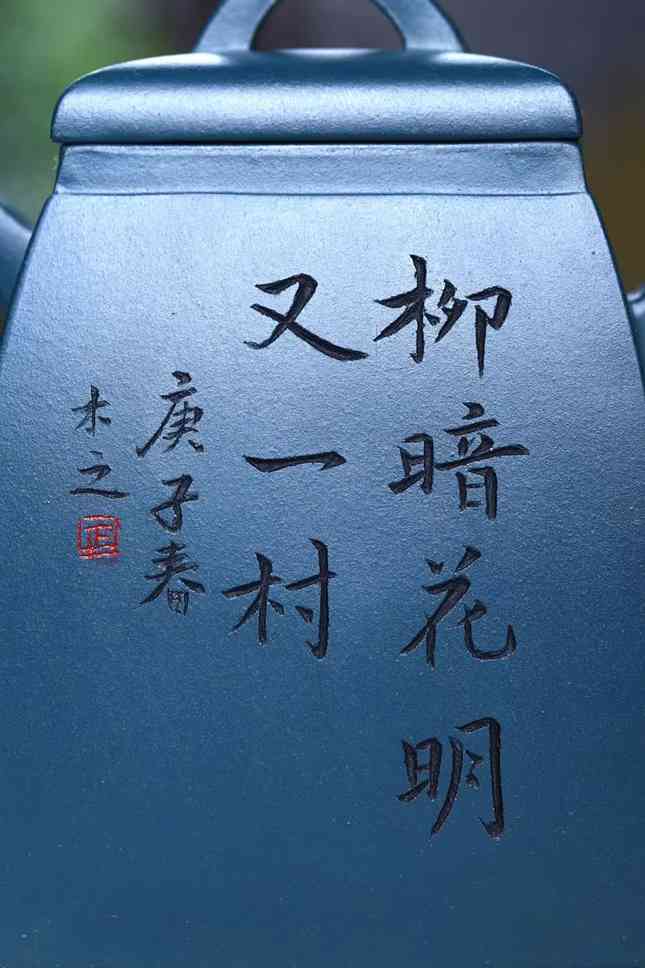 柳暗花明
又一村
庚子春
木之